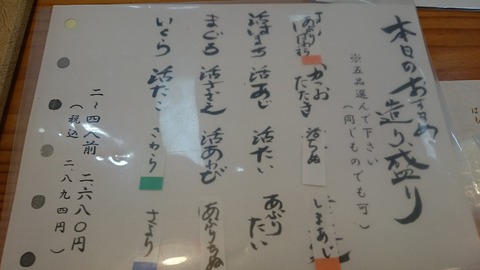 本日のおすすめ
造り盛り
※五品選んで下さい
(同じものでも可)
かつおたたき
活ちぬ
しまあじ
活はまち
活あじ
活たい
あぶりたい
まぐろ
活さざえ
活あわび
あぶりちぬ
いくら
活だこ
さわら
さより
二〜四人前 二、六八〇円
(税込 二、八九四円)